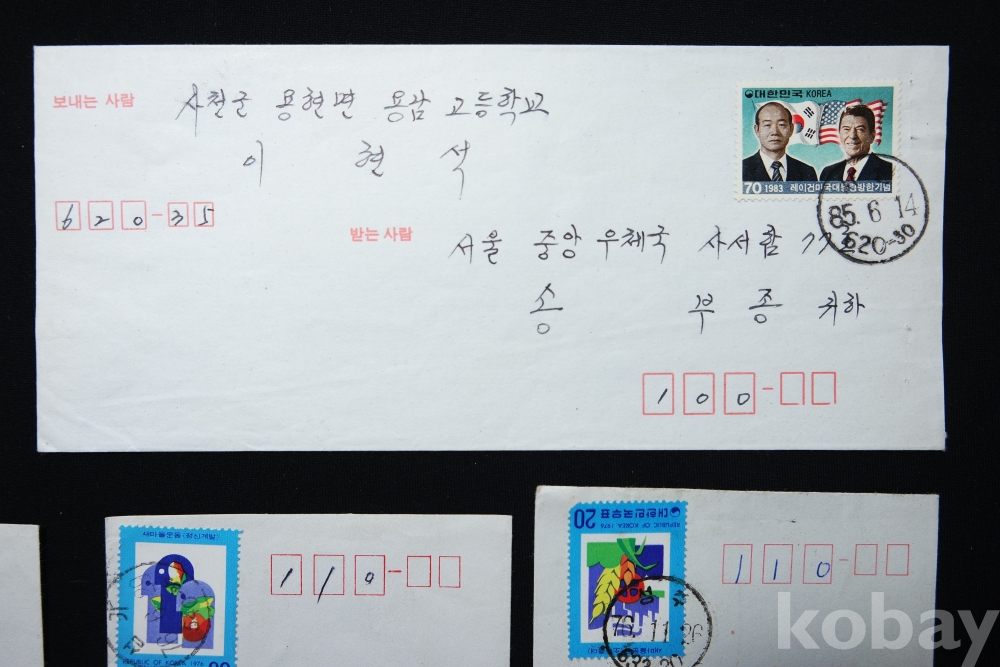 보내는 사람
사천군 용현면 용남 고등학교
이 현 석
620-35
대한민국 KOREA
70 1983 레이건미국대통령방한기념
85.6.14
620-30
받는 사람
서울 중앙우체국 사서함
송 부 종 귀하
100-
새마을운동
REPUBLIC OF KOREA 1976
110-
대한민국우표 20
REPUBLIC OF KOREA 1976
11.26
110-
kobay